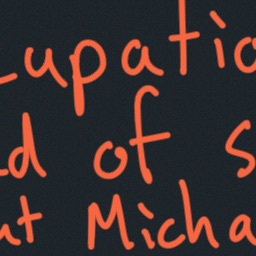 cupatio
d of s
ut Micha